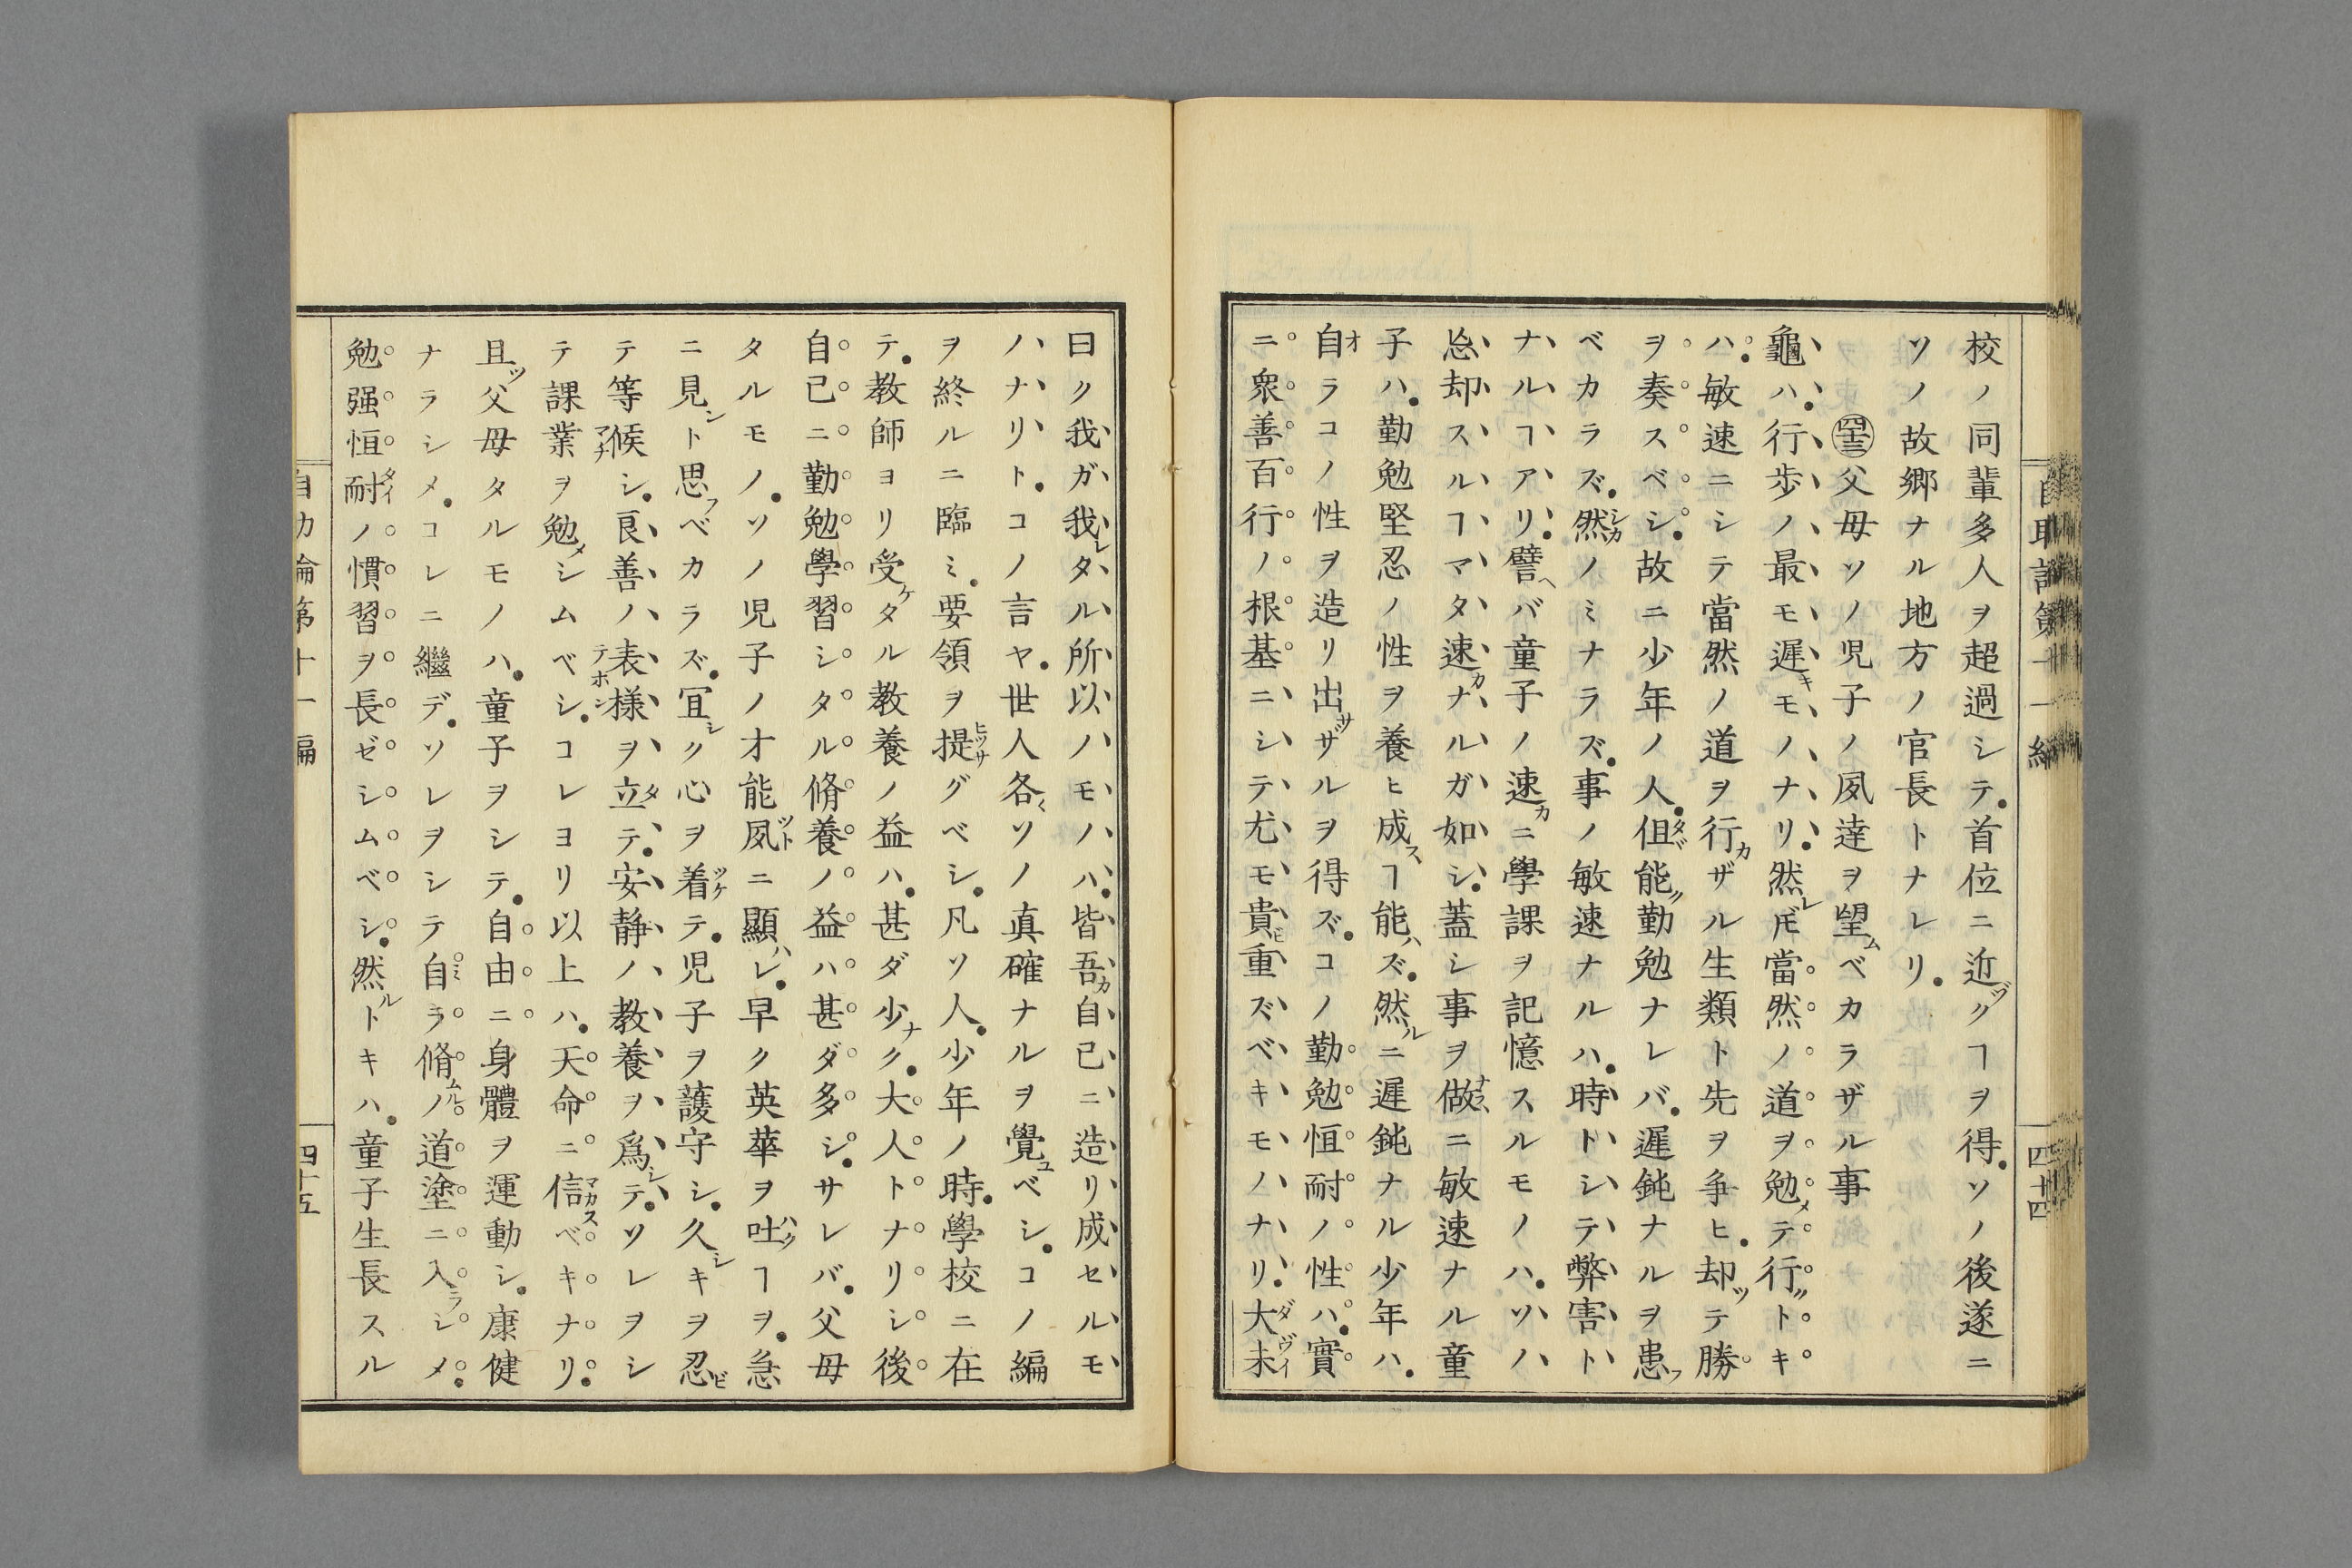 校ノ同輩多人ヲ超過シテ。首位ニ近ヅクヿヲ得。ソノ後遂ニ
ソノ故郷ナル地方ノ官長トナレリ。
四十三 父母ソノ児子ノ夙達ヲ望ムベカラザル事
龜ハ。行歩ノ最モ遲キモノナリ。然レ𪜈當然ノ道ヲ勉メテ行クトキ
ハ。敏速ニシテ當然ノ道ヲ行カザル生類ト先ヲ争ヒ。却ツテ勝
ヲ奏スベシ。故ニ少年ノ人。但能ク勤勉ナレバ。遲鈍ナルヲ患フ
ベカラズ。然ノミナラズ。事ノ敏速ナルハ。時トシテ弊害ト
ナルヿアリ。譬ヘバ童子ノ速カニ學課ヲ記憶スルモノハ。ソノ
忘却スルヿマタ速カナルガ如シ。蓋シ事ヲ做スニ敏速ナル童
子ハ。勤勉堅忍ノ性ヲ養ヒ成スヿ能ハズ。然ルニ遲鈍ナル少年ハ。
自オラコノ性ヲ造リ出サザルヲ得ズ。コノ勤勉恒耐ノ性ハ。實
ニ衆善百行ノ根基ニシテ尤モ貴重ズベキモノナリ。大未
自助論第十一編
四十四
曰ク我ガ我レタル所以ノモノハ。皆吾カ自己ニ造リ成セルモ
ノナリト。コノ言ヤ。世人各〻ソノ真確ナルヲ覺ユベシ。コノ編
ヲ終ルニ臨ミ。要領ヲ提グベシ。凡ソ人。少年ノ時。學校ニ在
テ。教師ヨリ受ケタル教養ノ益ハ。甚ダ少ナク。大人トナリシ後
自己ニ勤勉學習シタル脩養ノ益ハ甚ダ多シ。サレバ。父母
タルモノ。ソノ児子ノ才能夙ニ顯ハレ。早ク英華ヲ吐クヿヲ。急
ニ見シト思フベカラズ。宜シク心ヲ着テ。児子ヲ護守シ。久シキヲ忍ビ
テ等候シ。良善ノ表様ヲ立テ。安静ノ教養ヲ爲シテ。ソレヲシ
テ課業ヲ勉メシムベシ。コレヨリ以上ハ。天命ニ信スベキナリ。
且ツ父母タルモノハ。童子ヲシテ。自由ニ身體ヲ運動シ。康健
ナラシメ。コレニ繼デ。ソレヲシテ自ラ脩ムルノ道塗ニ入ラシメ。
勉强恒耐ノ慣習ヲ長ゼシムベシ。然ルトキハ。童子生長スル
自助論第十一編
四十五